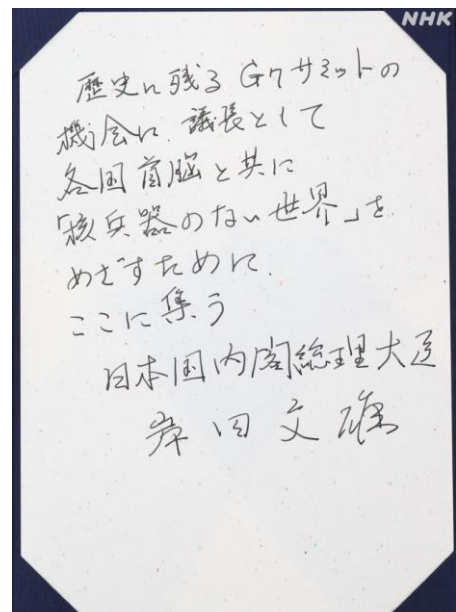 NHK
歴史に残るG7サミットの
機会に議長として
各国首脳と共に
「核兵器のない世界」を
めざすために
ここに集う
日本国内閣総理大臣
岸田文雄